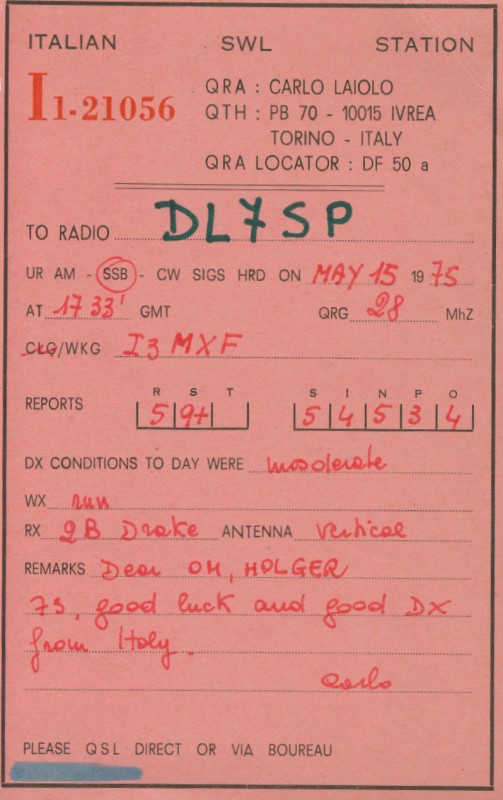 ITALIAN SWL STATION
I1-21056
QRA : CARLO LAIOLO
QTH : PB 70 - 10015 IVREA
TORINO - ITALY
QRA LOCATOR : DF 50 a
TO RADIO DL7SP
UR AM - SSB - CW SIGS HRD ON MAY 15 1975
AT 17 33' GMT QRG 28 MhZ
CLG/WKG I3 MXF
R S T S I N P O
REPORTS 5 9+ 5 4 5 3 4
DX CONDITIONS TO DAY WERE moderate
WX sun
RX 2B Drake ANTENNA vertical
REMARKS Dear OM, HOLGER
73, good luck and good DX
from Italy.
Carlo
PLEASE QSL DIRECT OR VIA BOUREAU